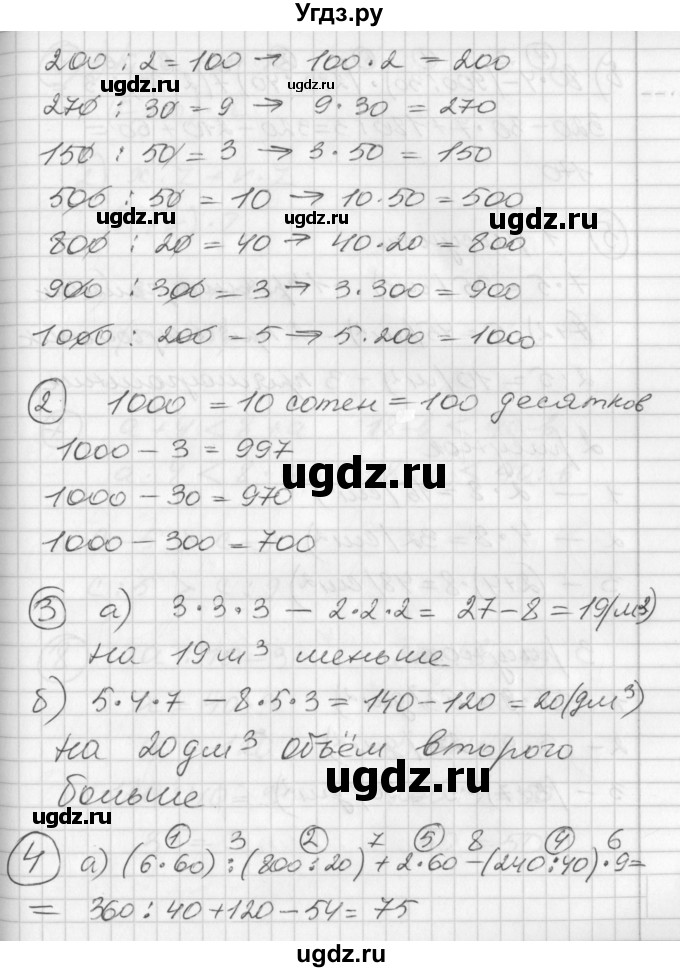 Угдз.ру
200 : 2 = 100 → 100·2 = 200
угдз.ru
угдз.ru
270 : 30 = 9 → 9·30 = 270
150 : 50 = 3 → 3·50 = 150
500 : 50 = 10 → 10·50 = 500
угдз.ru
угдз.ru
угдз.ru
800 : 20 = 40 → 40·20 = 800
900 : 300 = 3 → 3·300 = 900
1000 : 200 = 5 → 5·200 = 1000
2 1000 = 10 сотен = 100 десятков
1000 - 3 = 997
угдз.ru
1000 - 30 = 970
1000 - 300 = 700
3 а) 3·3·3 - 2·2·2 = 27 - 8 = 19(м³)
на 19 м³ меньше
б) 5·4·7 - 8·5·3 = 140 - 120 = 20(дм³)
на 20 дм³ объём второго
угдз.ru
больше
угдз.ru
1 3 2 7 5 8 4 6
4 а) (6·60) : (800 : 20) + 2·60 - (240 : 40)·9 =
= 360 : 40 + 120 - 54 = 75
угдз.ru
угдз.ru